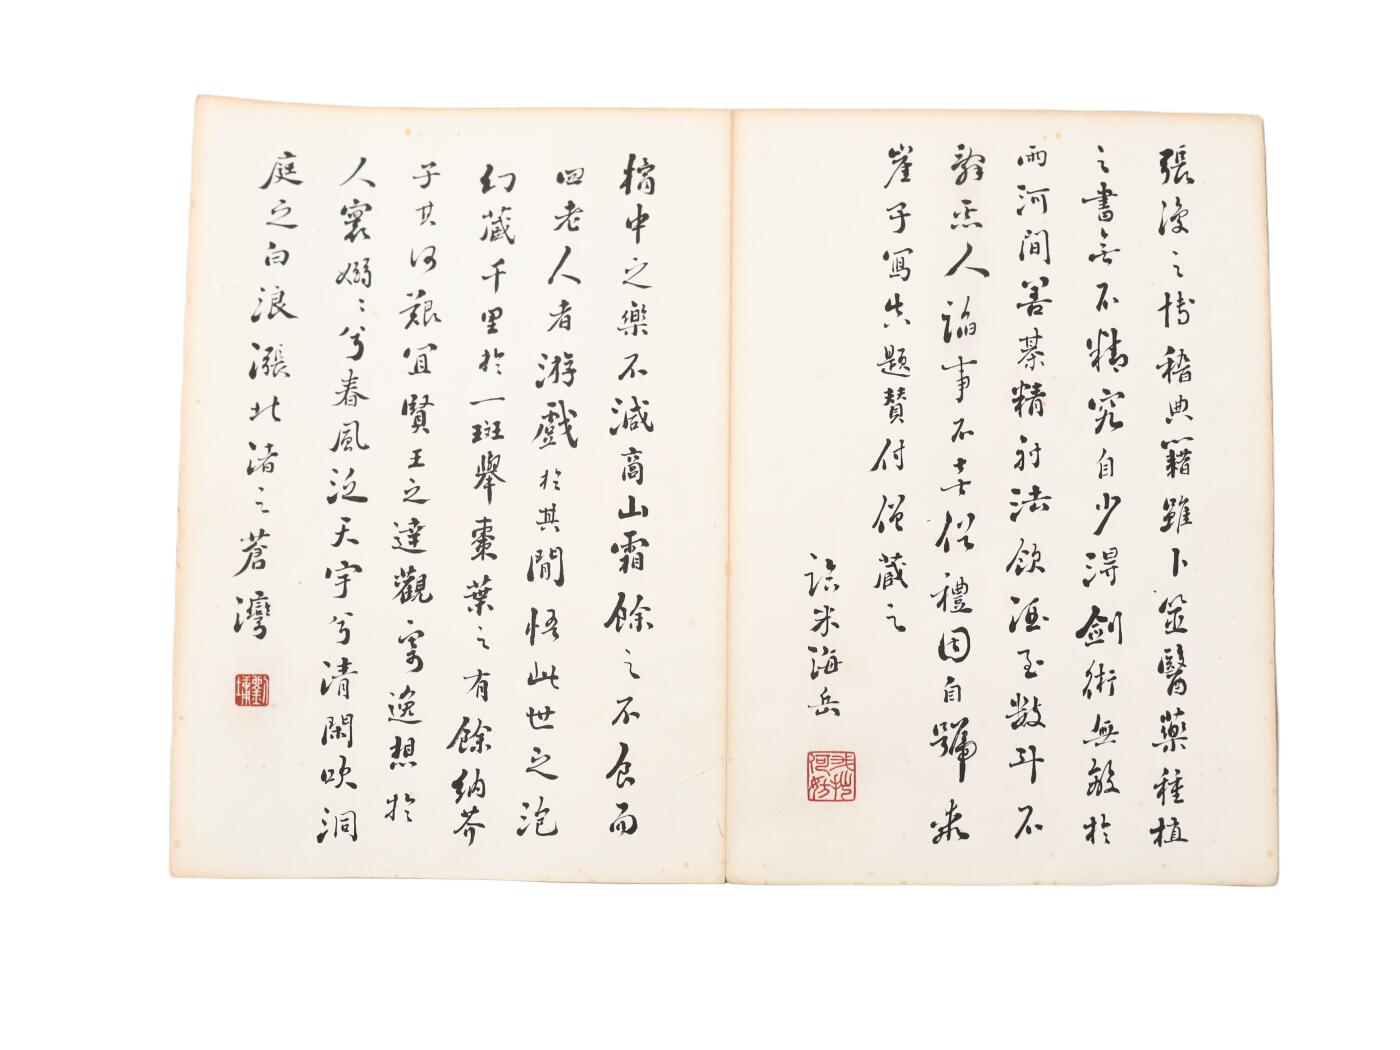 張復之博稽典籍雖卜筮醫藥種植
之書無不精究自少得劍術無敵於
兩河間善棊精射法飲酒至數斗不
亂惡人諂事不喜俗禮因自號乖
崖子寫真題贊付僧藏之
臨米海岳
殘花何妨
橘中之樂不減商山霜餘之不食而
四老人者游戲於其間悟此世之泡
幻藏千里於一斑舉棗葉之有餘納芥
子其何艱宜賢王之達觀寄逸想於
人寰嫋〻兮春風泛天宇兮清閑吹洞
庭之白浪漲北渚之蒼灣
劉墉